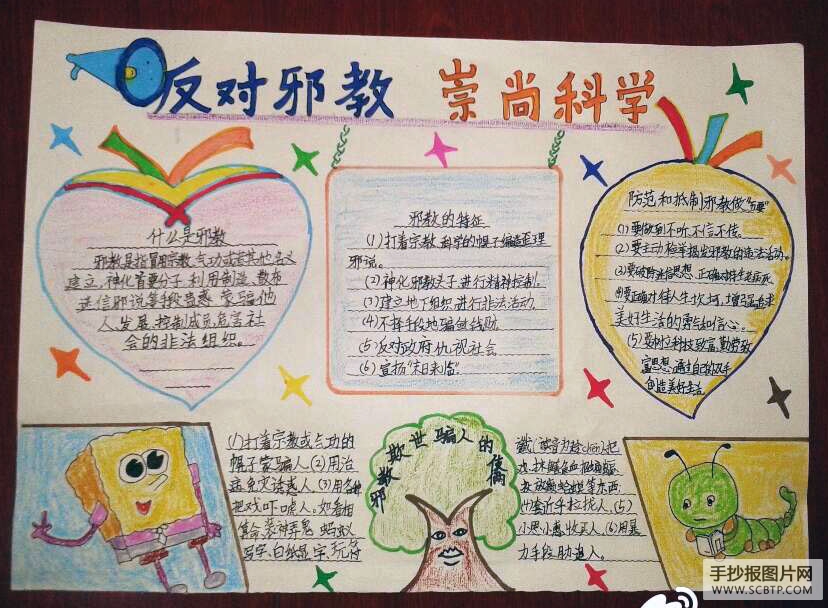 反对邪教 崇尚科学
什么是邪教
邪教是指冒用宗教、气功或者其他名义
建立,神化首要分子,利用制造、散布
迷信邪说等手段蛊惑、蒙骗他
人,发展、控制成员,危害社
会的非法组织。
邪教的特征
(1)打着宗教、科学的帽子编造歪理
邪说。
(2)神化邪教头子,进行精神控制。
(3)建立地下组织,进行非法活动。
(4)不择手段地骗财敛财。
(5)反对政府,仇视社会
(6)宣扬“末日来临”
防范和抵制邪教做“五要”
(1)要做到不听、不信、不传。
(2)要主动检举揭发邪教的违法活动。
(3)要破除迷信思想,正确对待生老病死
(4)要正确对待人生坎坷,增强追求
美好生活的勇气和信心。
(5)要树立科技致富,勤劳致
富思想,通过自己的双手
创造美好生活
(1)打着宗教或气功的
帽子蒙骗人(2)用治
病免灾诱惑人,(3)用各种
把戏吓唬人。如看相
算命、装神弄鬼、蚂蚁
写字、白纸显字、玩符
邪教欺世骗人的伎俩
东西
(4)套近乎拉拢人,(5)
小恩小惠收买人,(6)用暴
力手段胁迫人。
手抄报图片网
WWW.SCBTP.COM